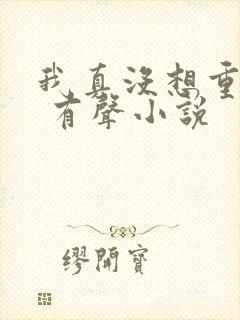 我真沒想重
有聲小說
繆開寶